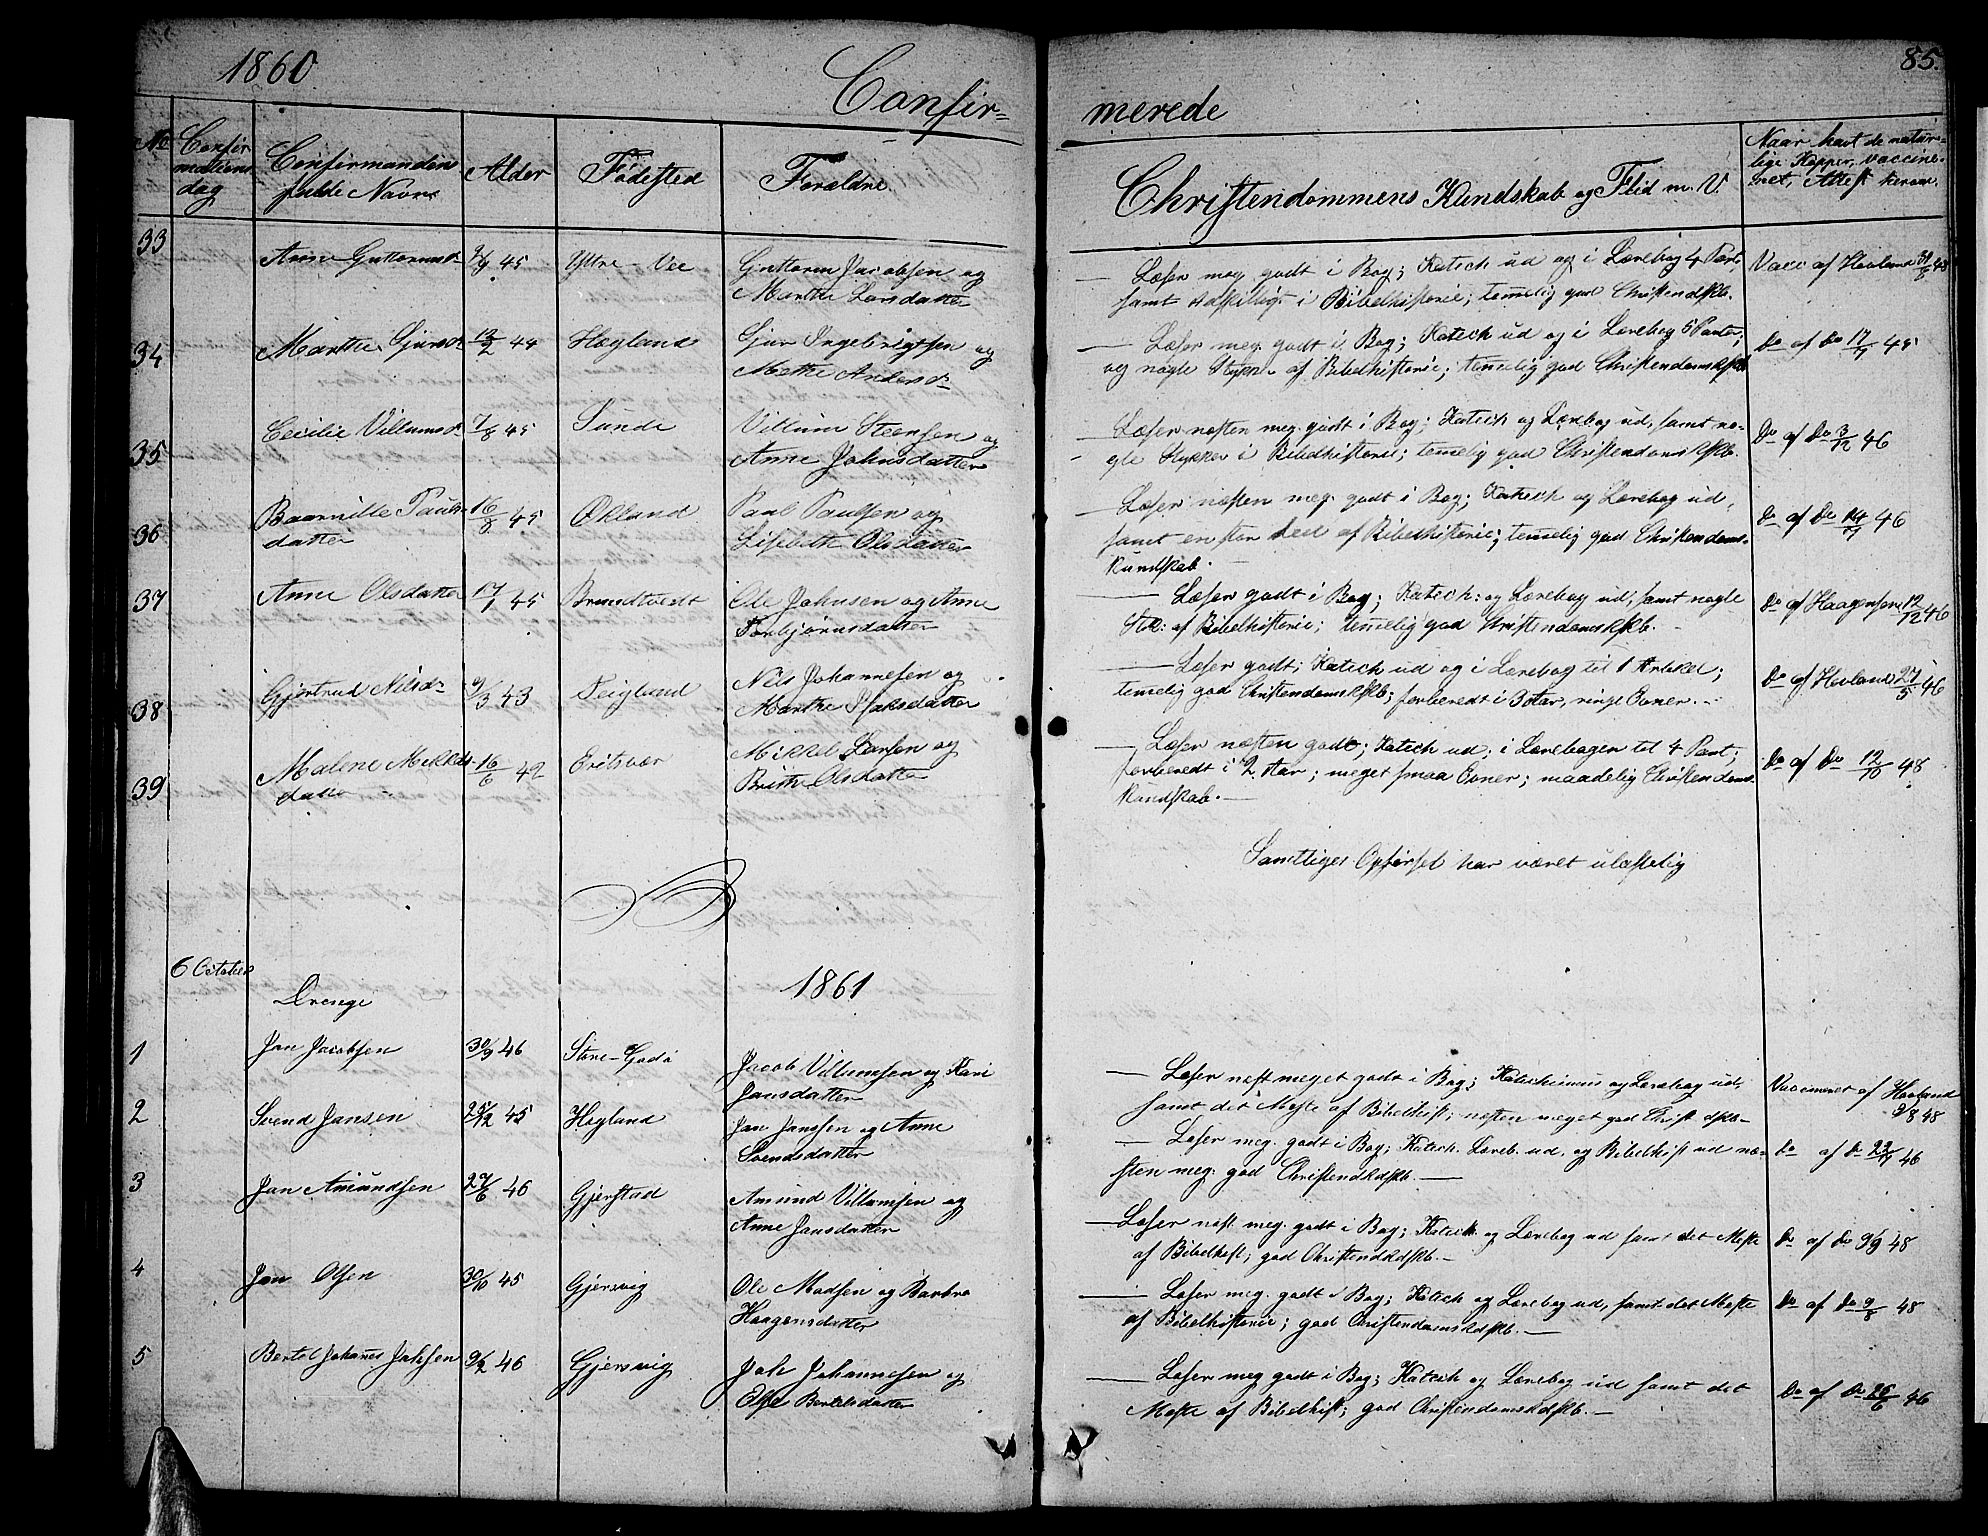 1860
Confir=
merede
85.
No
Confir
mations
dag
Confirmandens
fulde Navne
Alder
Fødested
Forældre
Christendommens Kundskab og Flid m. V.
Naar havt de natur-
lige Kopper, vaccine-
ret, Attest herom.
33
Anne Guttormsd
45
Yttre-Vee
Guttorm Jacobsen og
Marthe Larsdatter
— Læser meg. godt i Bog; Katech ud og i Lærebog 4 Part,
samt Adskilligt i Bibelhistorie; temelig god Christendskb.
Vacc af Hovland 48
34
Marthe Gjørsd 13/2 44
Høgland
Gjør Ingebrigtsen og
Mette Andersd
— Læser meg. godt i Bog; Katech ud og i Lærebog 5 Parter,
og nogle Stykker af Bibelhistorie; temelig god Christendomskskb
Do af Do 17/7 45
35
Cecilie Villumsd 7/8 45
Sunde
Villum Steensen og
Anne Johnsdatter
— Læser næsten meg. godt i Bog; Katech og Lærebog ud, samt no-
gle Stykker i Bibelhistorie; temelig god Christendomskskb.
Do af Do 3/12 46
36
Baarnille Pauls-
datter
16/8 45
Økland
Paul Paulsen og
Lisebeth Olsdatter
— Læser næsten meg. godt i Bog; Katech og Lærebog ud,
samt en stor Deel af Bibelhistorie; temelig god Christendoms-
kundskab.
Do af Do 14/7 46
37
Anne Olsdatter 17/1 45
Brundtvedt
Ole Johnsen og Anne
Torbjørnsdatter
— Læser godt i Bog; Katech: og Lærebog ud, samt nogle
Stk: af Bibelhistorie; temelig god Christendomskskb.
Do af Haagensen 12/12 46
38
Gjertrud Nilsd 9/3 43
Teigland
Nils Johannesen og
Marthe Isaksdatter
— Læser godt; Katech ud og i Lærebog til 1 Artikel;
temelig god Christendomskskb; forberedt i 3 Aar, ringe Evner.
Do af Hovland 27/5 46
39
Malene Mikkels
datter
16/6 42
Eritsvær
Mikkel Larsen og
Britthe Olsdatter
— Læser næsten godt; Katech ud; i Lærebogen til 4 Part;
forberedt i 2 Aar; meget smaa Evner; maadelig Christendoms-
kundskab.
Do af Do 12/10 48
Samtliges Opførsel har været ulastelig
6 October
Drenge
1861
1
Jon Jacobsen
30/9 46
Store-Godø
Jacob Villumsen og Kari
Jonsdatter
— Læser næst meget godt i Bog; Katechismus og Lærebog ud,
samt det Meste af Bibelhist; næsten meget god Christdskb
Vaccineret af Hovland
9/8 48
2
Svend Jansen
25/12 45
Høgland
Jan Janssen og Anne
Svendsdatter
— Læser meg. godt i Bog; Katech. Læreb. ud, og Bibelhist ud næ-
sten meg. god Christendkdskb.
Do af Do 22/7 46
3
Jan Amundsen
46
Gjerstad
Amund Villumsen og
Anne Jansdatter
— Læser næst. meg. godt i Bog; Katech. og Lærebog ud samt det Meste
af Bibelhist; god Christendkdskb.
Do af Do 9/9 48
4
Jon Olsen
30/10 45
Gjersvig
Ole Madsen og Barbro
Haagensdatter
— Læser meg. godt i Bog; Katech og Lærebog ud, samt det Meste
af Bibelhistorie; god Christendomskdskb.
Do af Do 9/8 48
5
Bertel Johanes Johsen
9/2 46
Gjersvig
Joh Johannesen og
Else Bertelsdatter
— Læser meg godt i Bog; Katech og Lærebog ud samt det
Meste af Bibelhist; god Christendomskdskb.
Do af Do 26/6 46